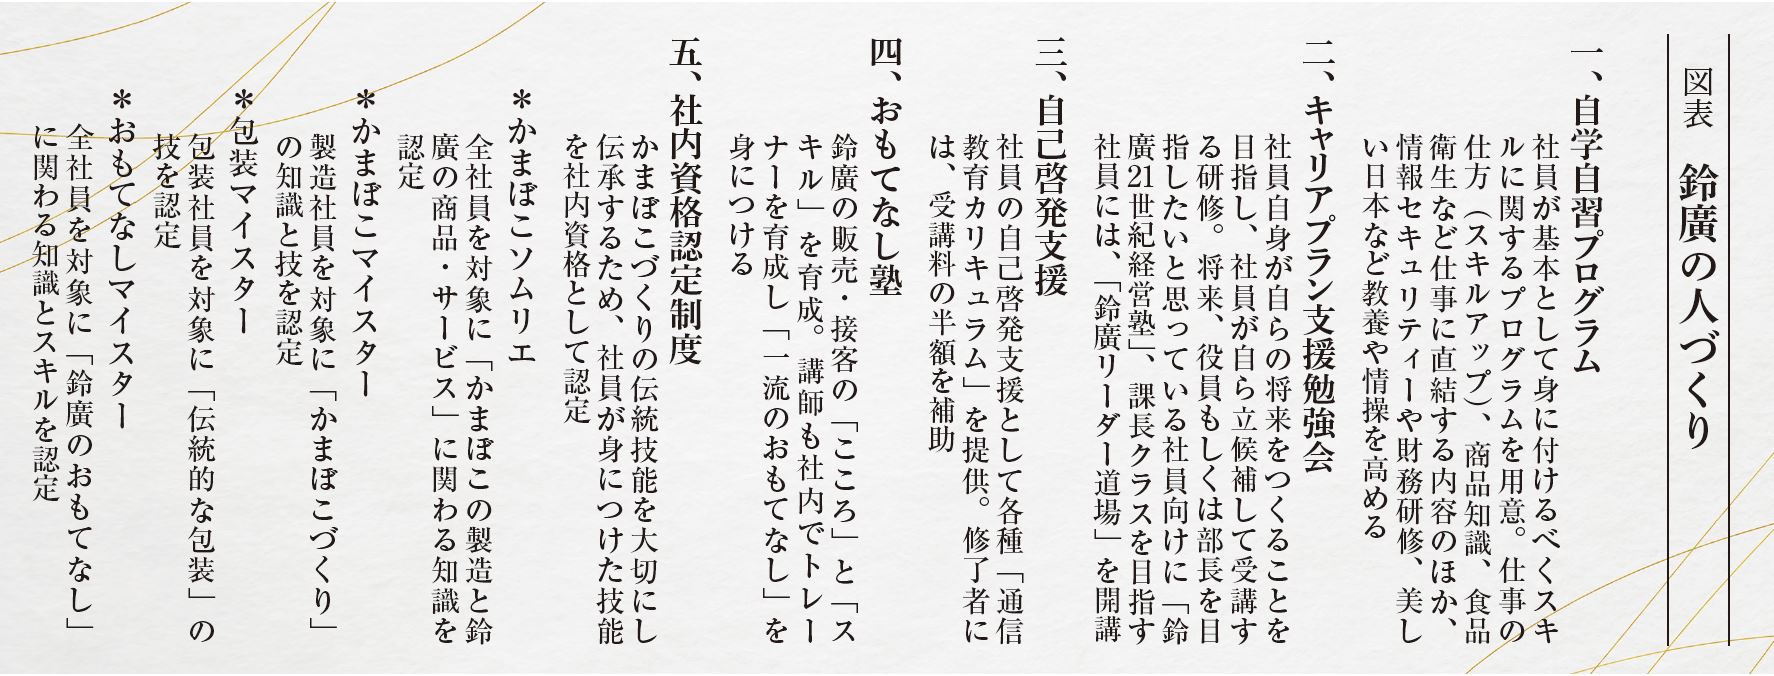 図表 鈴廣の人づくり
一、自学自習プログラム
社員が基本として身に付けるべくスキ
ルに関するプログラムを用意。仕事の
仕方（スキルアップ）、商品知識、食品
衛生など仕事に直結する内容のほか、
情報セキュリティーや財務研修、美し
い日本など教養や情操を高める
二、キャリアプラン支援勉強会
社員自身が自らの将来をつくることを
目指し、社員が自ら立候補して受講す
る研修。将来、役員もしくは部長を目
指したいと思っている社員向けに「鈴
廣21世紀経営塾」、課長クラスを目指す
社員には、「鈴廣リーダー道場」を開講
三、自己啓発支援
社員の自己啓発支援として各種「通信
教育カリキュラム」を提供。修了者に
は、受講料の半額を補助
四、おもてなし塾
鈴廣の販売・接客の「こころ」と「ス
キル」を育成。講師も社内でトレー
ナーを育成し「一流のおもてなし」を
身につける
五、社内資格認定制度
かまぼこづくりの伝統技能を大切にし
伝承するため、社員が身につけた技能
を社内資格として認定
＊かまぼこソムリエ
全社員を対象に「かまぼこの製造と鈴
廣の商品・サービス」に関わる知識を
認定
＊かまぼこマイスター
製造社員を対象に「かまぼこづくり」
の知識と技を認定
＊包装マイスター
包装社員を対象に「伝統的な包装」の
技を認定
＊おもてなしマイスター
全社員を対象に「鈴廣のおもてなし」
に関わる知識とスキルを認定